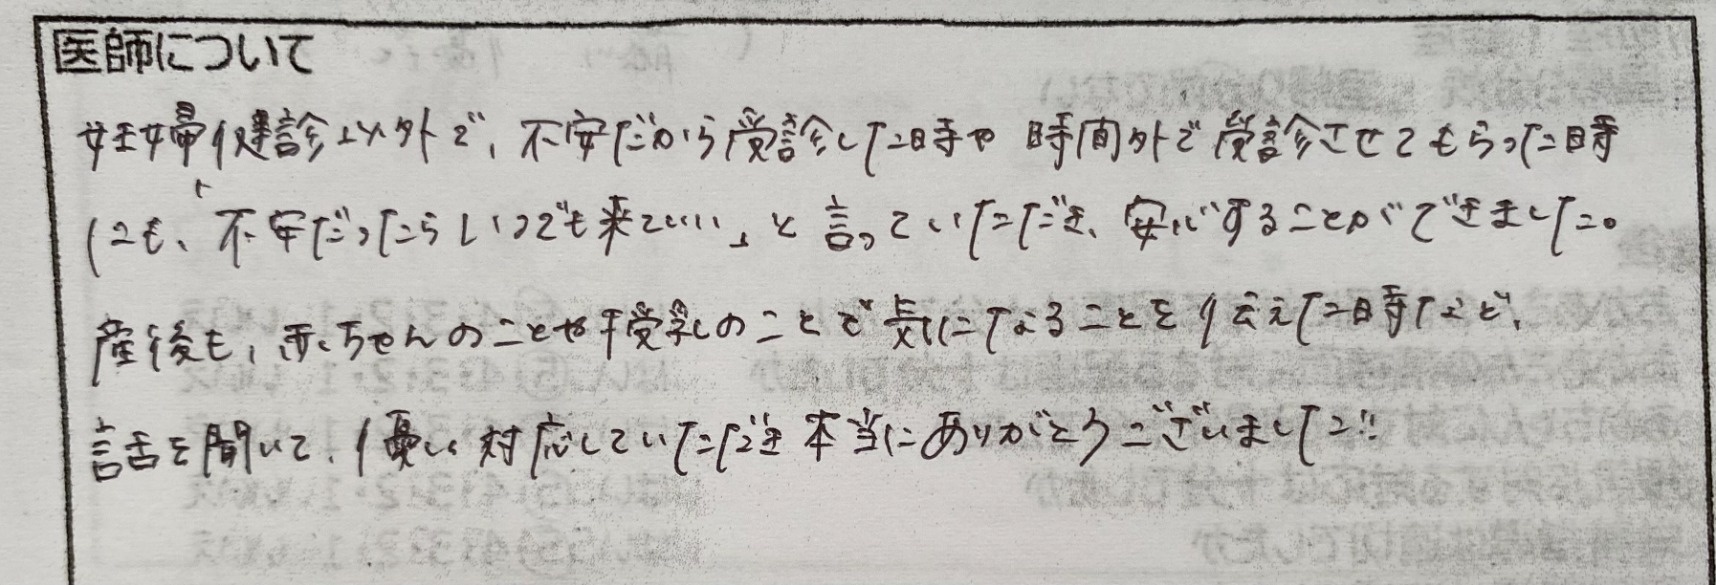 医師について
妊婦健診以外で、不安だから受診した時や時間外で受診させてもらった時
にも、「不安だったらいつでも来ていい」と言っていただき、安心することができました。
産後も、赤ちゃんのことや授乳のことで気になることを伝えた時など、
話を聞いて、優しく対応していただき本当にありがとうございました!!